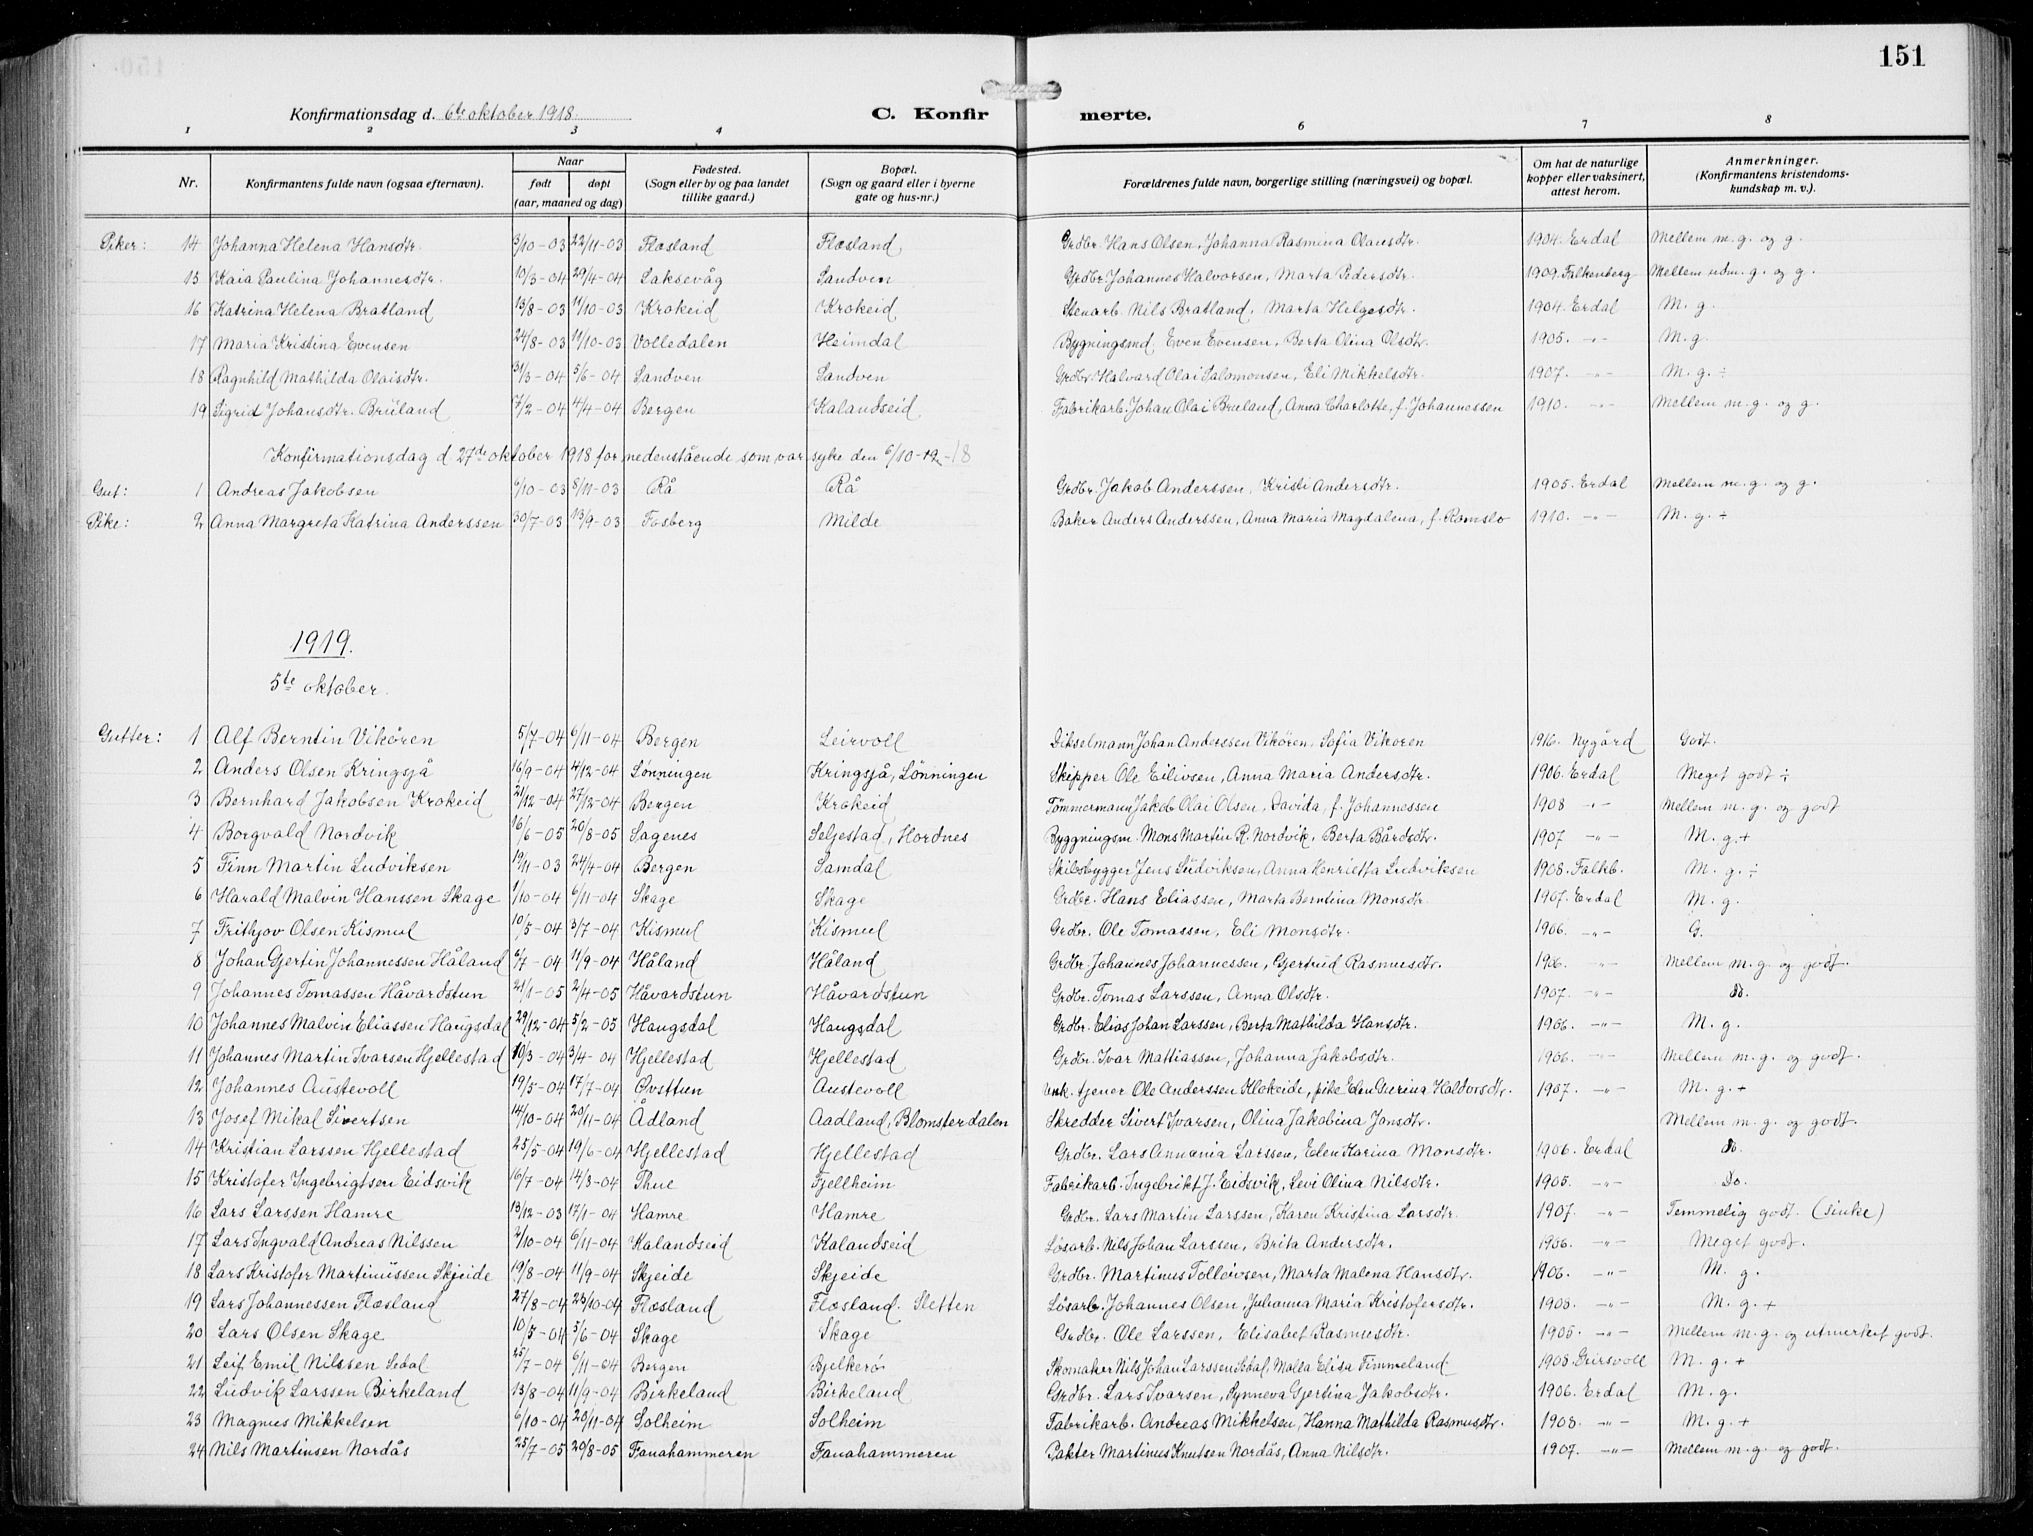 151
Konfirmationsdag d. 6te oktober 1918. C. Konfirmerte.
1 2 3 4 5 6 7 8
Nr. Konfirmantens fulde navn (ogsaa efternavn). Naar født døpt (aar, maaned og dag) Fødested. (Sogn eller by og paa landet tillike gaard.) Bopæl. (Sogn og gaard eller i byerne gate og hus-nr.) Forældrenes fulde navn, borgerlige stilling (næringsvei) og bopæl. Om hat de naturlige kopper eller vaksinert, attest herom. Anmerkninger. (Konfirmantens kristendoms-kundskap m. v.).
Piker: 14 Johanna Helena Hansdtr. 3/10-03 22/11-03 Flesland Flesland Grdbr. Hans Olsen, Johanna Rasmina Olausdtr. 1904. Erdal Mellem m. g. og g.
15 Kaia Paulina Johannesdtr. 10/3-04 29/4-04 Laksevåg Sandven Grdbr. Johannes Halvorsen, Marta Pedersdtr. 1909. Falkenberg Mellem udm. g. og g.
16 Katrina Helena Bratland 13/8-03 11/10-03 Krokeid Krokeid Stenarb. Nils Bratland, Marta Helgesdtr. 1904. Erdal M. g.
17 Maria Kristina Evensen 24/8-03 11/10-03 Volledalen Heimdal Bygningsmd. Even Evensen, Berta Olina Olsdtr. 1905. -"- M. g.
18 Ragnhild Mathilda Olaisdtr. 31/3-04 5/6-04 Sandven Sandven Grdbr. Halvard Olai Salomonsen, Eli Mikkelsdtr. 1907. -"- M. g. ÷
19 Sigrid Johansdtr. Brüland 7/2-04 4/4-04 Bergen Kalandseid Fabrikarb. Johan Olai Bruland, Anna Charlotte, f. Johannessen 1910. -"- Mellem m. g. og g.
Konfirmationsdag d 27de oktober 1918 for nedenstående som var syke den 6/10-18
Gut: 1 Andreas Jakobsen 6/10-03 8/11-03 Rå Rå Grdbr. Jakob Anderssen, Kristi Andersdtr. 1905. Erdal Mellem m. g. og g.
Pike: 2 Anna Margreta Katrina Anderssen 30/7-03 13/9-03 Fosberg Milde Baker Anders Anderssen, Anna Maria Magdalena, f. Romslo 1910. -"- M. g. ÷
1919.
5te oktober.
Gutter: 1 Alf Berntin Vikören 5/7-04 6/11-04 Bergen Leirvoll Dikselmann Johan Anderssen Vikören, Sofia Vikoren 1916. Nygård Godt.
2 Anders Olsen Kringsjå 16/9-04 4/12-04 Lønningen Kringsjå, Lønningen Skipper Ole Eilivsen, Anna Maria Andersdtr. 1906. Erdal Meget godt ÷
3 Bernhard Jakobsen Krokeid 21/12-04 27/12-04 Bergen Krokeid Tømmermann Jakob Olai Olsen, Davida, f. Johannessen 1908 -"- Mellem m. g. og godt
4 Borgvald Nordvik 16/6-05 20/8-05 Sagenes Seljestad, Hordnes Byggningsm. Mons Martin R. Nordvik, Berta Bårdsdtr. 1907 -"- M. g. +
5 Finn Martin Ludviksen 19/11-03 24/4-04 Bergen Samdal Skibsbygger Jens Ludviksen, Anna Henrietta Ludviksen 1908. Falkb. M. g. ÷
6 Harald Malvin Hanssen Skage 1/10-04 6/11-04 Skage Skage Grdbr. Hans Eliassen, Marta Berntina Monsdtr. 1907. Erdal M. g.
7 Frithjov Olsen Kismul 10/5-04 3/7-04 Kismul Kismul Grdbr. Ole Tomassen, Eli Monsdtr. 1906. -"- G.
8 Johan Gjertin Johannessen Håland 6/7-04 11/9-04 Håland Håland Grdbr. Johannes Johannessen, Gjertrud Rasmusdtr. 1906. -"- Mellem m. g. og godt.
9 Johannes Tomassen Håvardstun 21/1-05 2/4-05 Håvardstun Håvardstun Grdbr. Tomas Larssen, Anna Olsdtr. 1907. -"- Do.
10 Johannes Malvin Eliassen Haugsdal 29/12-04 5/2-05 Haugsdal Haugsdal Grdbr. Elias Johan Larssen, Berta Mathilda Hansdtr. 1906. -"- M. g.
11 Johannes Martin Ivarsen Hjellestad 10/3-04 3/4-04 Hjellestad Hjellestad Grdbr. Ivar Mattiassen, Johanna Jakobsdtr. 1906. -"- Mellem m. g. og godt.
12 Johannes Austevoll 19/5-04 17/7-04 Øvsttun Austevoll Unk. tjener Ole Anderssen Klokeide, pike Elen Guerina Haldorsdtr. 1907. -"- M. g. +
13 Josef Mikal Sivertsen 14/10-04 20/11-04 Ådland Aadland, Blomsterdalen Skredder Sivert Ivarsen, Olina Jakobina Jansdtr. Mellem m. g. og godt.
14 Kristian Larssen Hjellestad 25/5-04 19/6-04 Hjellestad Hjellestad Grdbr. Lars Annania Larssen, Elen Karina Monsdtr. 1906. Erdal Do.
15 Kristofer Ingebrigtsen Eidsvik 16/7-04 14/8-04 Thue Fjellheim Fabrikarb. Ingebrikt J. Eidsvik, Sevi Olina Nilsdtr. 1905. -"- Do.
16 Lars Larssen Hamre 13/12-03 17/1-04 Hamre Hamre Grdbr. Lars Martin Larssen, Karen Kristina Larsdtr. 1907. -"- Temmelig godt. (sinke)
17 Lars Ingvald Andreas Nilssen 2/10-04 6/11-04 Kalandseid Kalandseid Løsarb. Nils Johan Larssen, Brita Andersdtr. 1906. -"- Meget godt.
18 Lars Kristofer Martinussen Skjeide 19/8-04 11/9-04 Skjeide Skjeide Grdbr. Martinus Tolleivsen, Marta Malena Hansdtr. 1906. -"- M. g.
19 Lars Johannessen Flesland 27/8-04 23/10-04 Flesland Flesland. Sletten Løsarb. Johannes Olsen, Johanna Maria Kristofersdtr. 1908. -"- M. g. +
20 Lars Olsen Skage 10/3-04 5/6-04 Skage Skage Grdbr. Ole Larssen, Elisabet Rasmusdtr. 1905. -"- Mellem m. g. og utmerket godt.
21 Leif Emil Nilssen Sedal 25/7-04 6/11-04 Bergen Bjelkerö Skomaker Nils Johan Larssen Malla Elisa Fimmeland 1908 M. g. +
22 Ludvik Larssen Birkeland 13/8-04 11/9-04 Birkeland Birkeland Grdbr. Lars Ivarsen, Synneva Gjertina Jakobsdtr. 1906. Erdal M. g.
23 Magnus Mikkelsen 6/10-04 20/11-04 Solheim Solheim Fabrikarb. Andreas Mikkelsen, Hanna Mathilda Rasmusdtr. 1908. -"- M. g. +
24 Nils Martinsen Nordås 25/7-05 20/8-05 Fanahammeren Fanahammeren Pakter Martinus Knutsen Nordås, Anna Nilsdtr. 1907. -"- Mellem m. g. og godt.